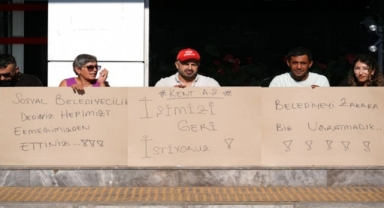 SOSYAL BELEDİYECİLİK
DEDİNİZ HEPİMİZİ
EKMEĞİMİZDEN
ETTİNİZ...!!!
#KENT A.Ş
İŞİMİZİ
GERİ
İSTİYORUZ !
BELEDİYEYİ ZARARA
BİZ UĞRATMADIK..
! ! ! ! !